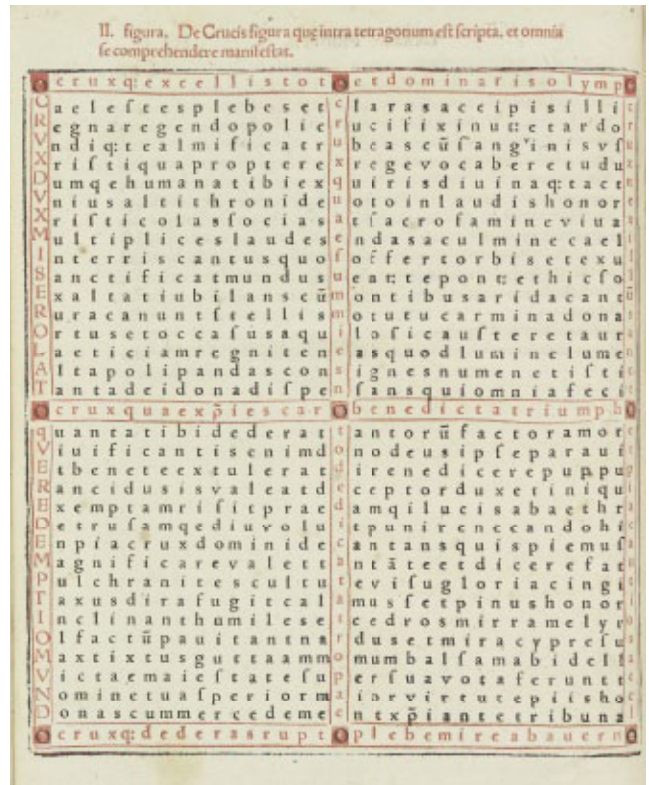 II. figura. De Crucis figura quę intra tetragonum est ſcripta, et omnia
ſe comprehendere manifeſtat.
O cruxq:excellistot O etdominarisolymp O
C aeleſtesplebeset c larasacceipisilli
R egnaregendopolie r ucifixinut:etardo
V ndiq:tealmificatr u beascūſang'inisvſ
X riſtiquaproptere x regevocaberetudu
D umqehumanatibiex q uirisdiuinaq:tact
V niusaltithronide u otoinlaudishonor
X riſticolasſocias a tſacrofamineviua
M ultipliceslaudes e ndasaculminecael
I nterriscantusquo ſ offertorbisetexu
S anctificatmundus u ear:tepont:ethicſo
E xaltatiubilanscū m ontibusaridacant
R uracanuntſtellis m otutucarminadona
O rtusetoccaſusaqu i loſicauſteretaur
L aeticiamregniten e asquodluminelume
A ltapolipandascon s ignesnumenetiſti
T antadeidonadiſpen ſansquiomniafeci
O cruxquaexp̄iescar O benedictatriumph O
q uantatibidederat t antorūfactoramor
V iuificantisenimd o nodeusipſeparaui
E tbeneteextulerat irenedicerepuppu
R ancidusisvaleatd e ceptorduxetiniqu
E xemptamriſitprae d amqilucisabaethr
D etruſamqediuvolu i tpunirenecandohi
E npiacruxdominide c antansquispiemuſ
M agnificarevalett a ntāteetdicerefat
P ulchranitescultu t eviſugloriacingi
T axusdirafugitcal a musſetpinushonor
I nclinanthumilese cedrosmirramelyr
O lfactūpauitantna r dusetmiracypreſu
M axtixtusguttaamm o mumbalſamabidell
V ictaemaieſtateſu p erſuavotaferuntt
N ominetuaſperiorm a iorvirtutepiisho
D onascummercedeme c ntxp̄iantetribuna
O cruxq:dederasrupt O plebemireabauern O